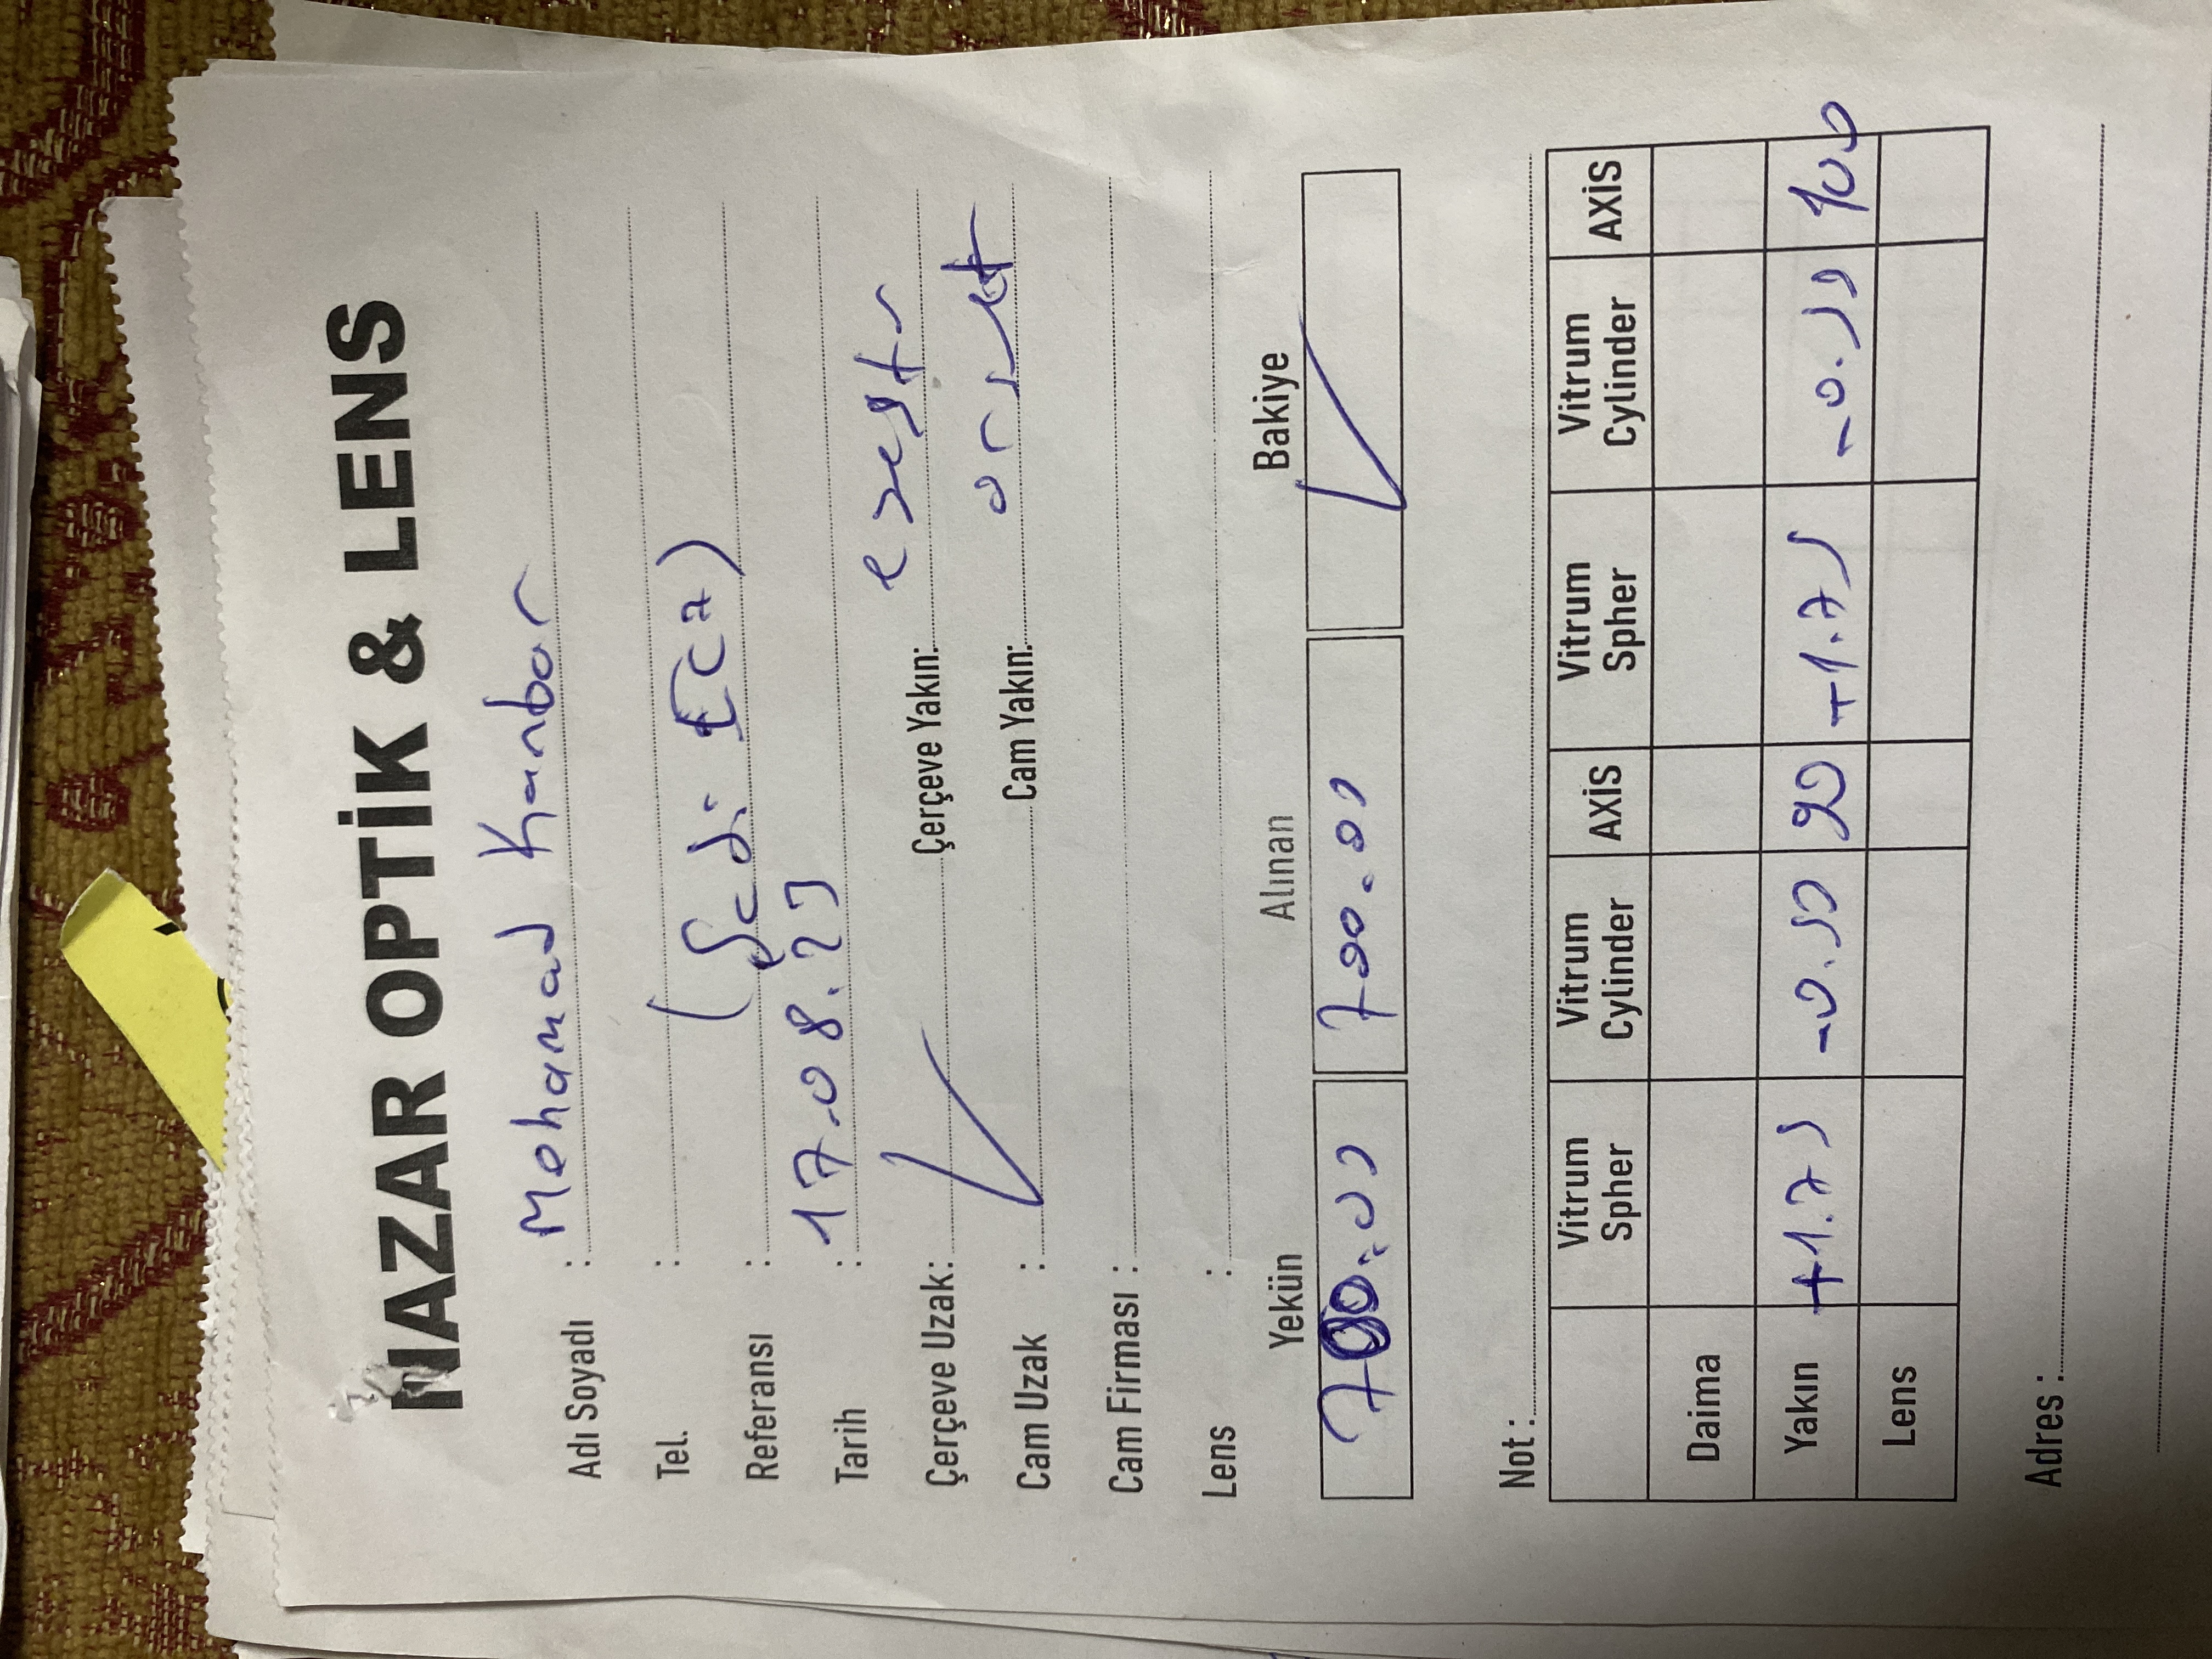 NAZAR OPTİK & LENS
Adı Soyadı : Mohamad Kanbar
Tel. :
Referansı : (Şadi ECZ)
Tarih : 17.08.23
Çerçeve Uzak: Çerçeve Yakın:
Cam Uzak : Cam Yakın:
Cam Firması :
Lens :
Yekün Alınan Bakiye
700.00 700.00
Not :
Vitrum Spher Vitrum Cylinder AXİS Vitrum Spher Vitrum Cylinder AXİS
Daima
Yakın +1.75 -0.50 90 +1.75 -0.50 100
Lens
Adres :